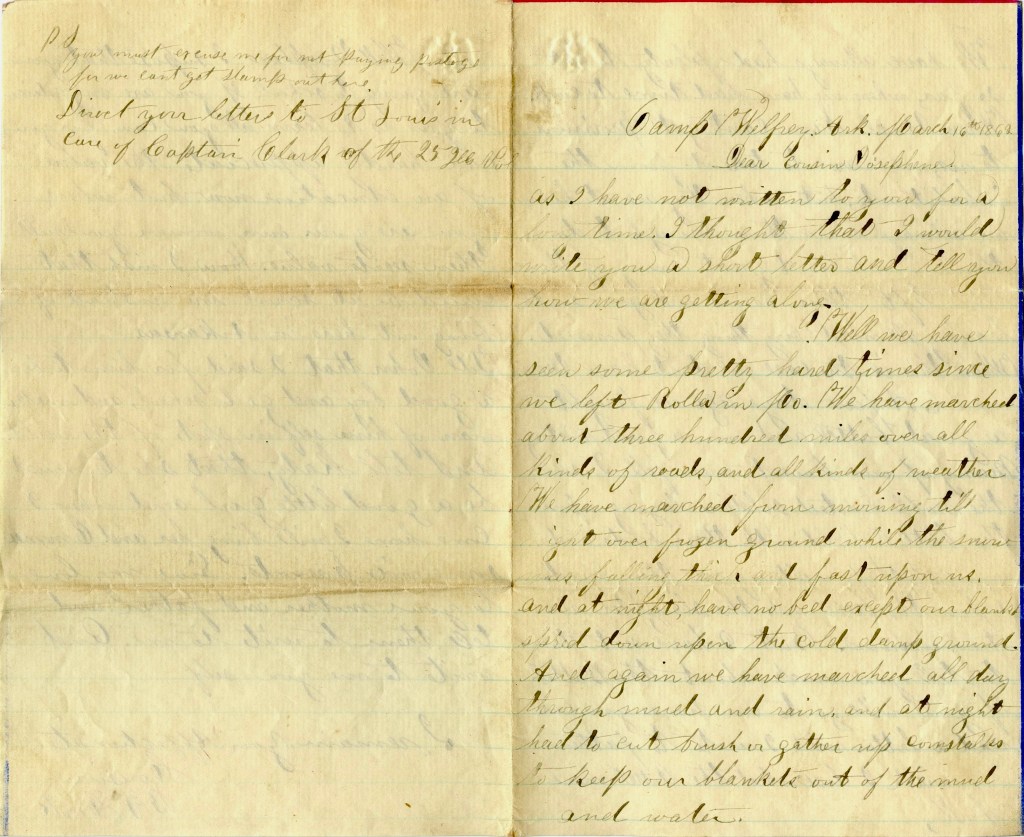 P S
you must excuse me for not paying postage
for we cant get stamps out here
Direct your letters to St Louis in
care of Captain Clark of the 25 Ills
Camp Welfrey, Ark. March 16th 1862
Dear Cousin Josephine
as I have not written to you for a
long time. I thought that I would
write you a short letter and tell you
how we are getting along.
Well we have
seen some pretty hard times since
we left Rolla in Mo. We have marched
about three hundred miles over all
kinds of roads, and all kinds of weather
We have marched from morning till
night over frozen ground while the snow
was falling thick and fast upon us.
and at night, have no bed except our blankets
spred down upon the cold damp ground.
And again we have marched all day
through mud and rain, and at night
had to cut brush or gather up cornstalks
to keep our blankets out of the mud
and water.